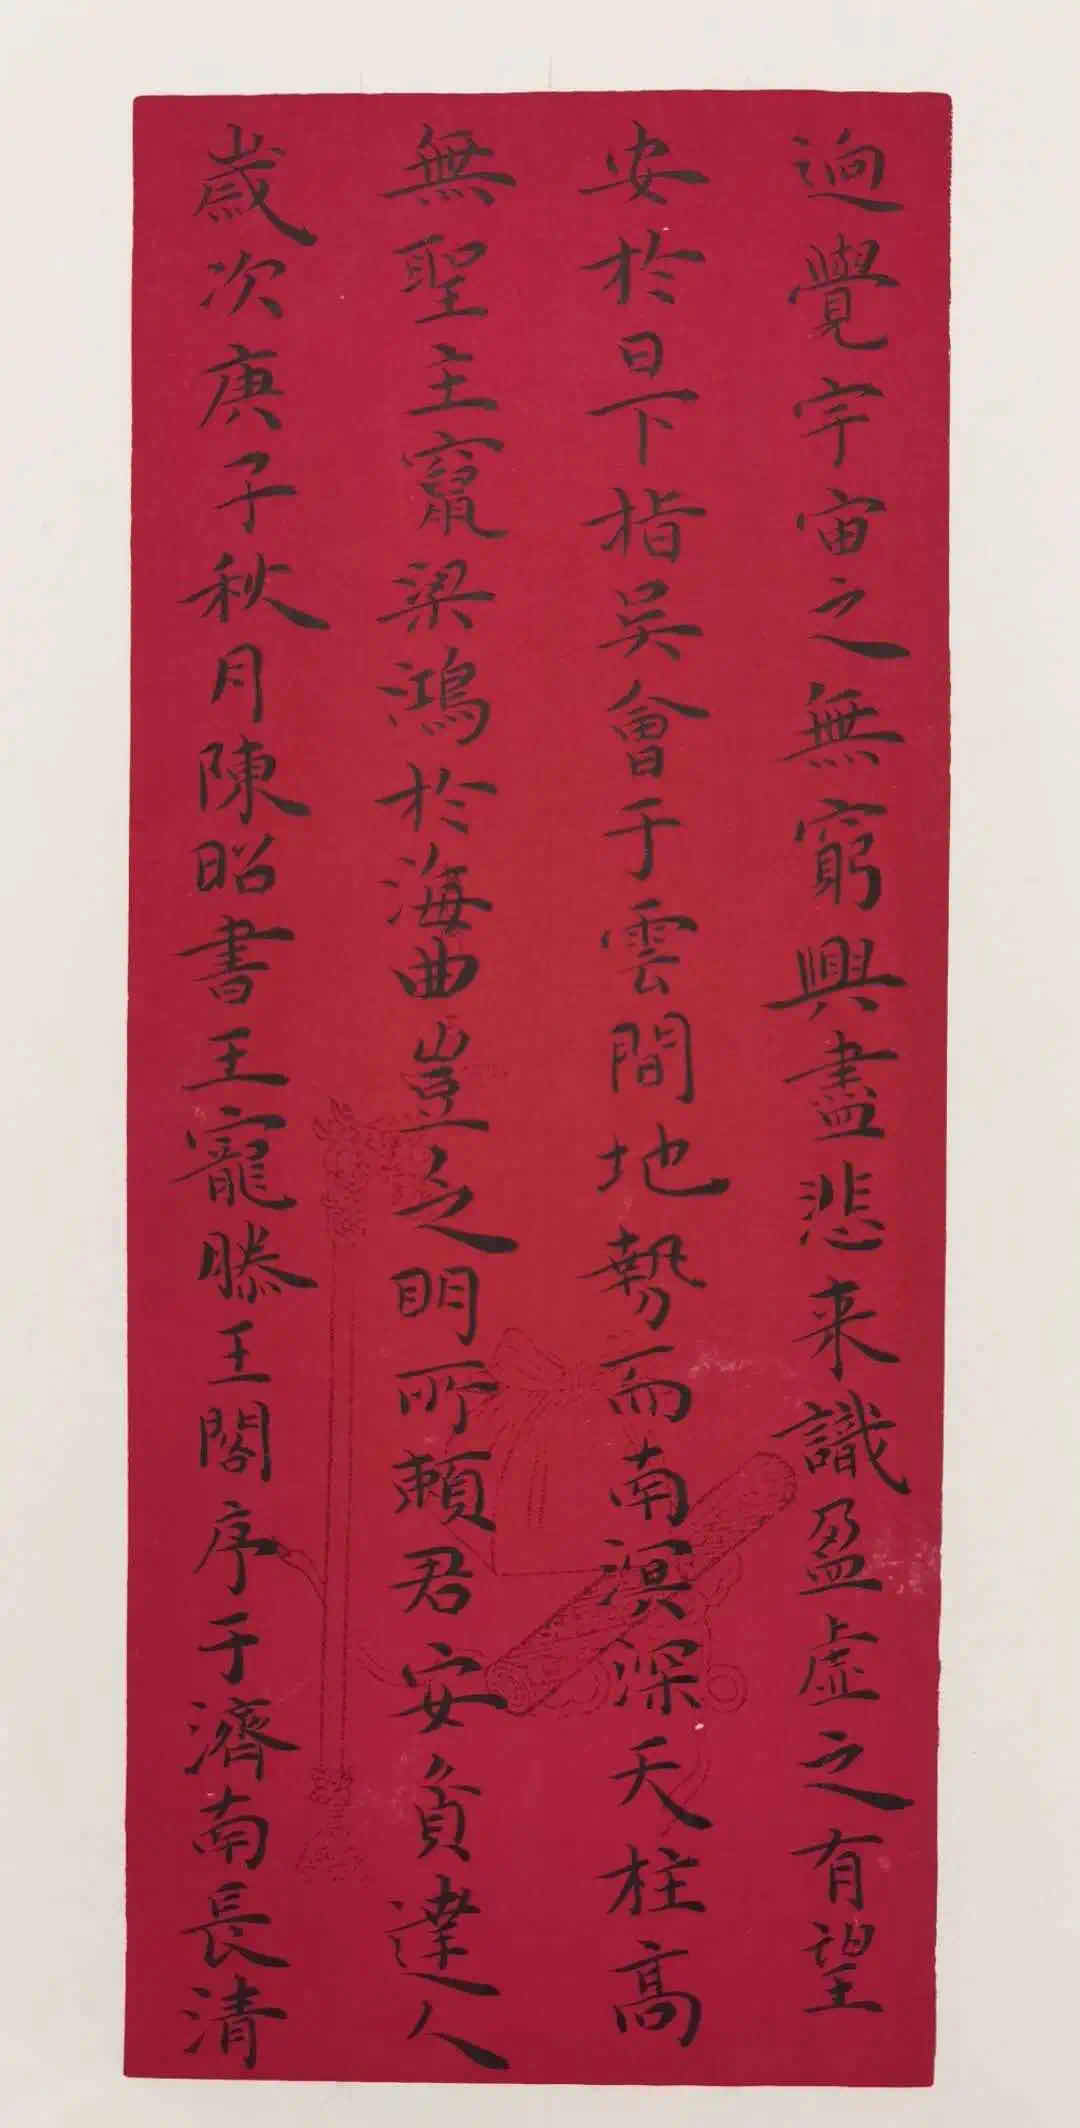 迥覺宇宙之無窮興盡悲来識盈虛之有望
安於日下指吴會于雲間地勢而南溟深天柱高
無聖主竄梁鴻於海曲豈之明所賴君安貧達人
歲次庚子秋月陳昭書王寵滕王閣序于濟南長清